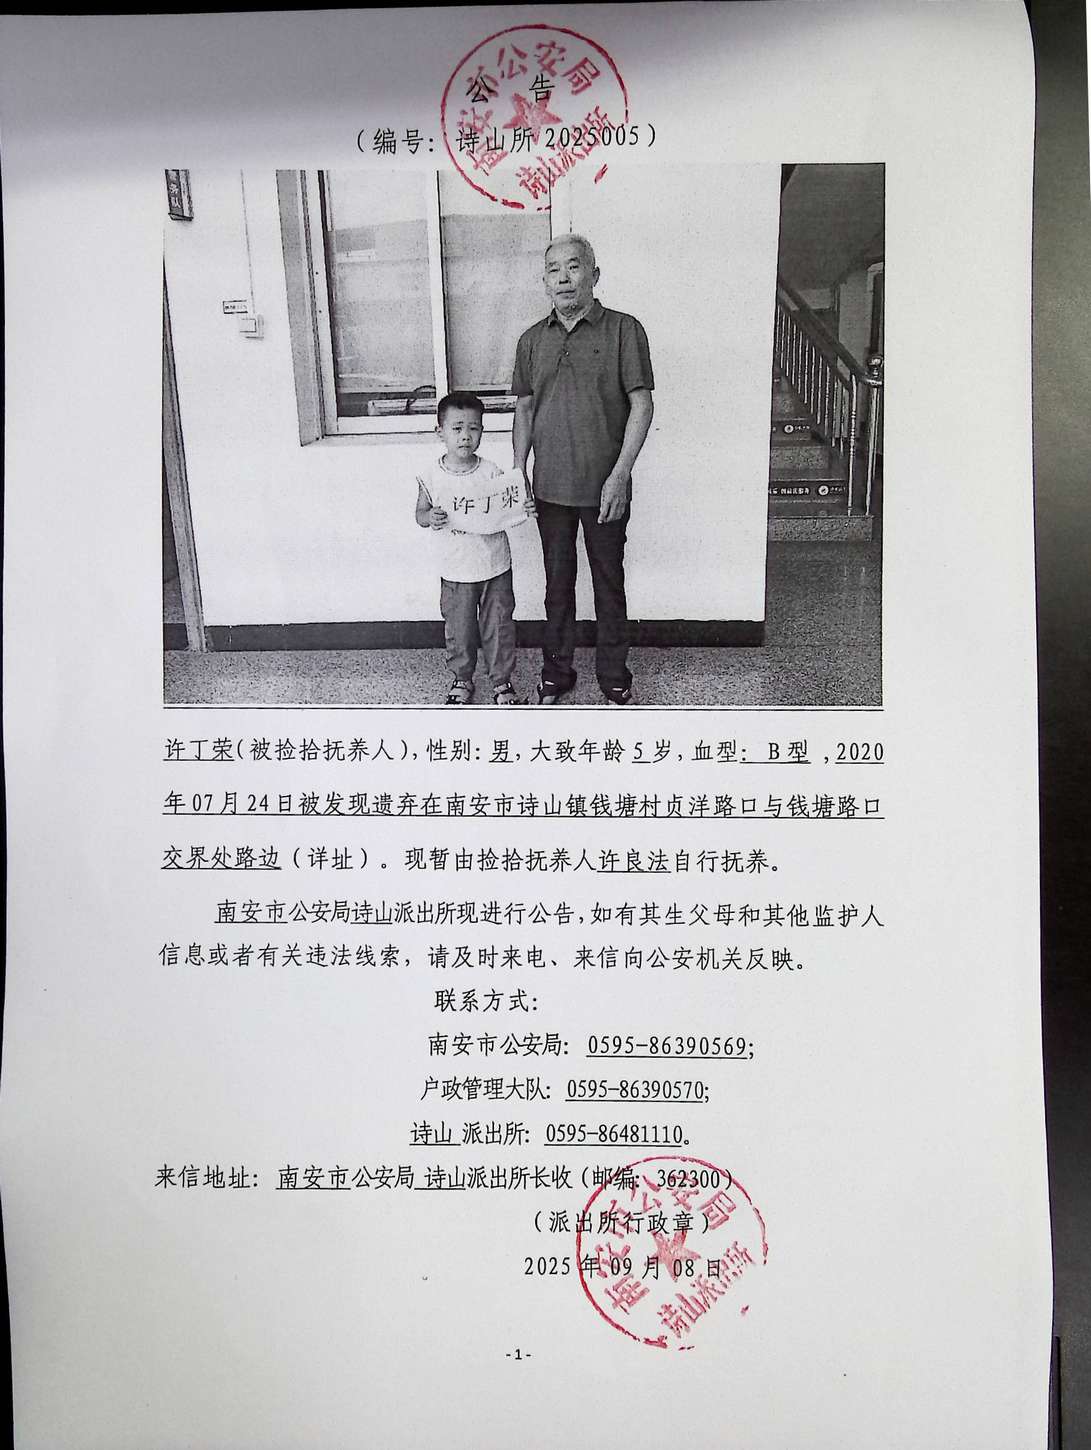 公 告
(编号：诗山所 2025005)
南安市公安局
诗山派出所
务队
许丁荣
许丁荣(被捡拾抚养人)，性别：男，大致年龄 5 岁，血型： B 型 ，2020
年 07 月 24 日被发现遗弃在南安市诗山镇钱塘村贞洋路口与钱塘路口
交界处路边（详址）。现暂由捡拾抚养人许良法自行抚养。
南安市公安局诗山派出所现进行公告，如有其生父母和其他监护人
信息或者有关违法线索，请及时来电、来信向公安机关反映。
联系方式：
南安市公安局： 0595-86390569;
户政管理大队： 0595-86390570;
诗山 派出所： 0595-86481110。
来信地址： 南安市公安局 诗山派出所长收（邮编：362300）
（派出所行政章）
2025 年 09 月 08 日
南安市公安局
诗山派出所
-1-